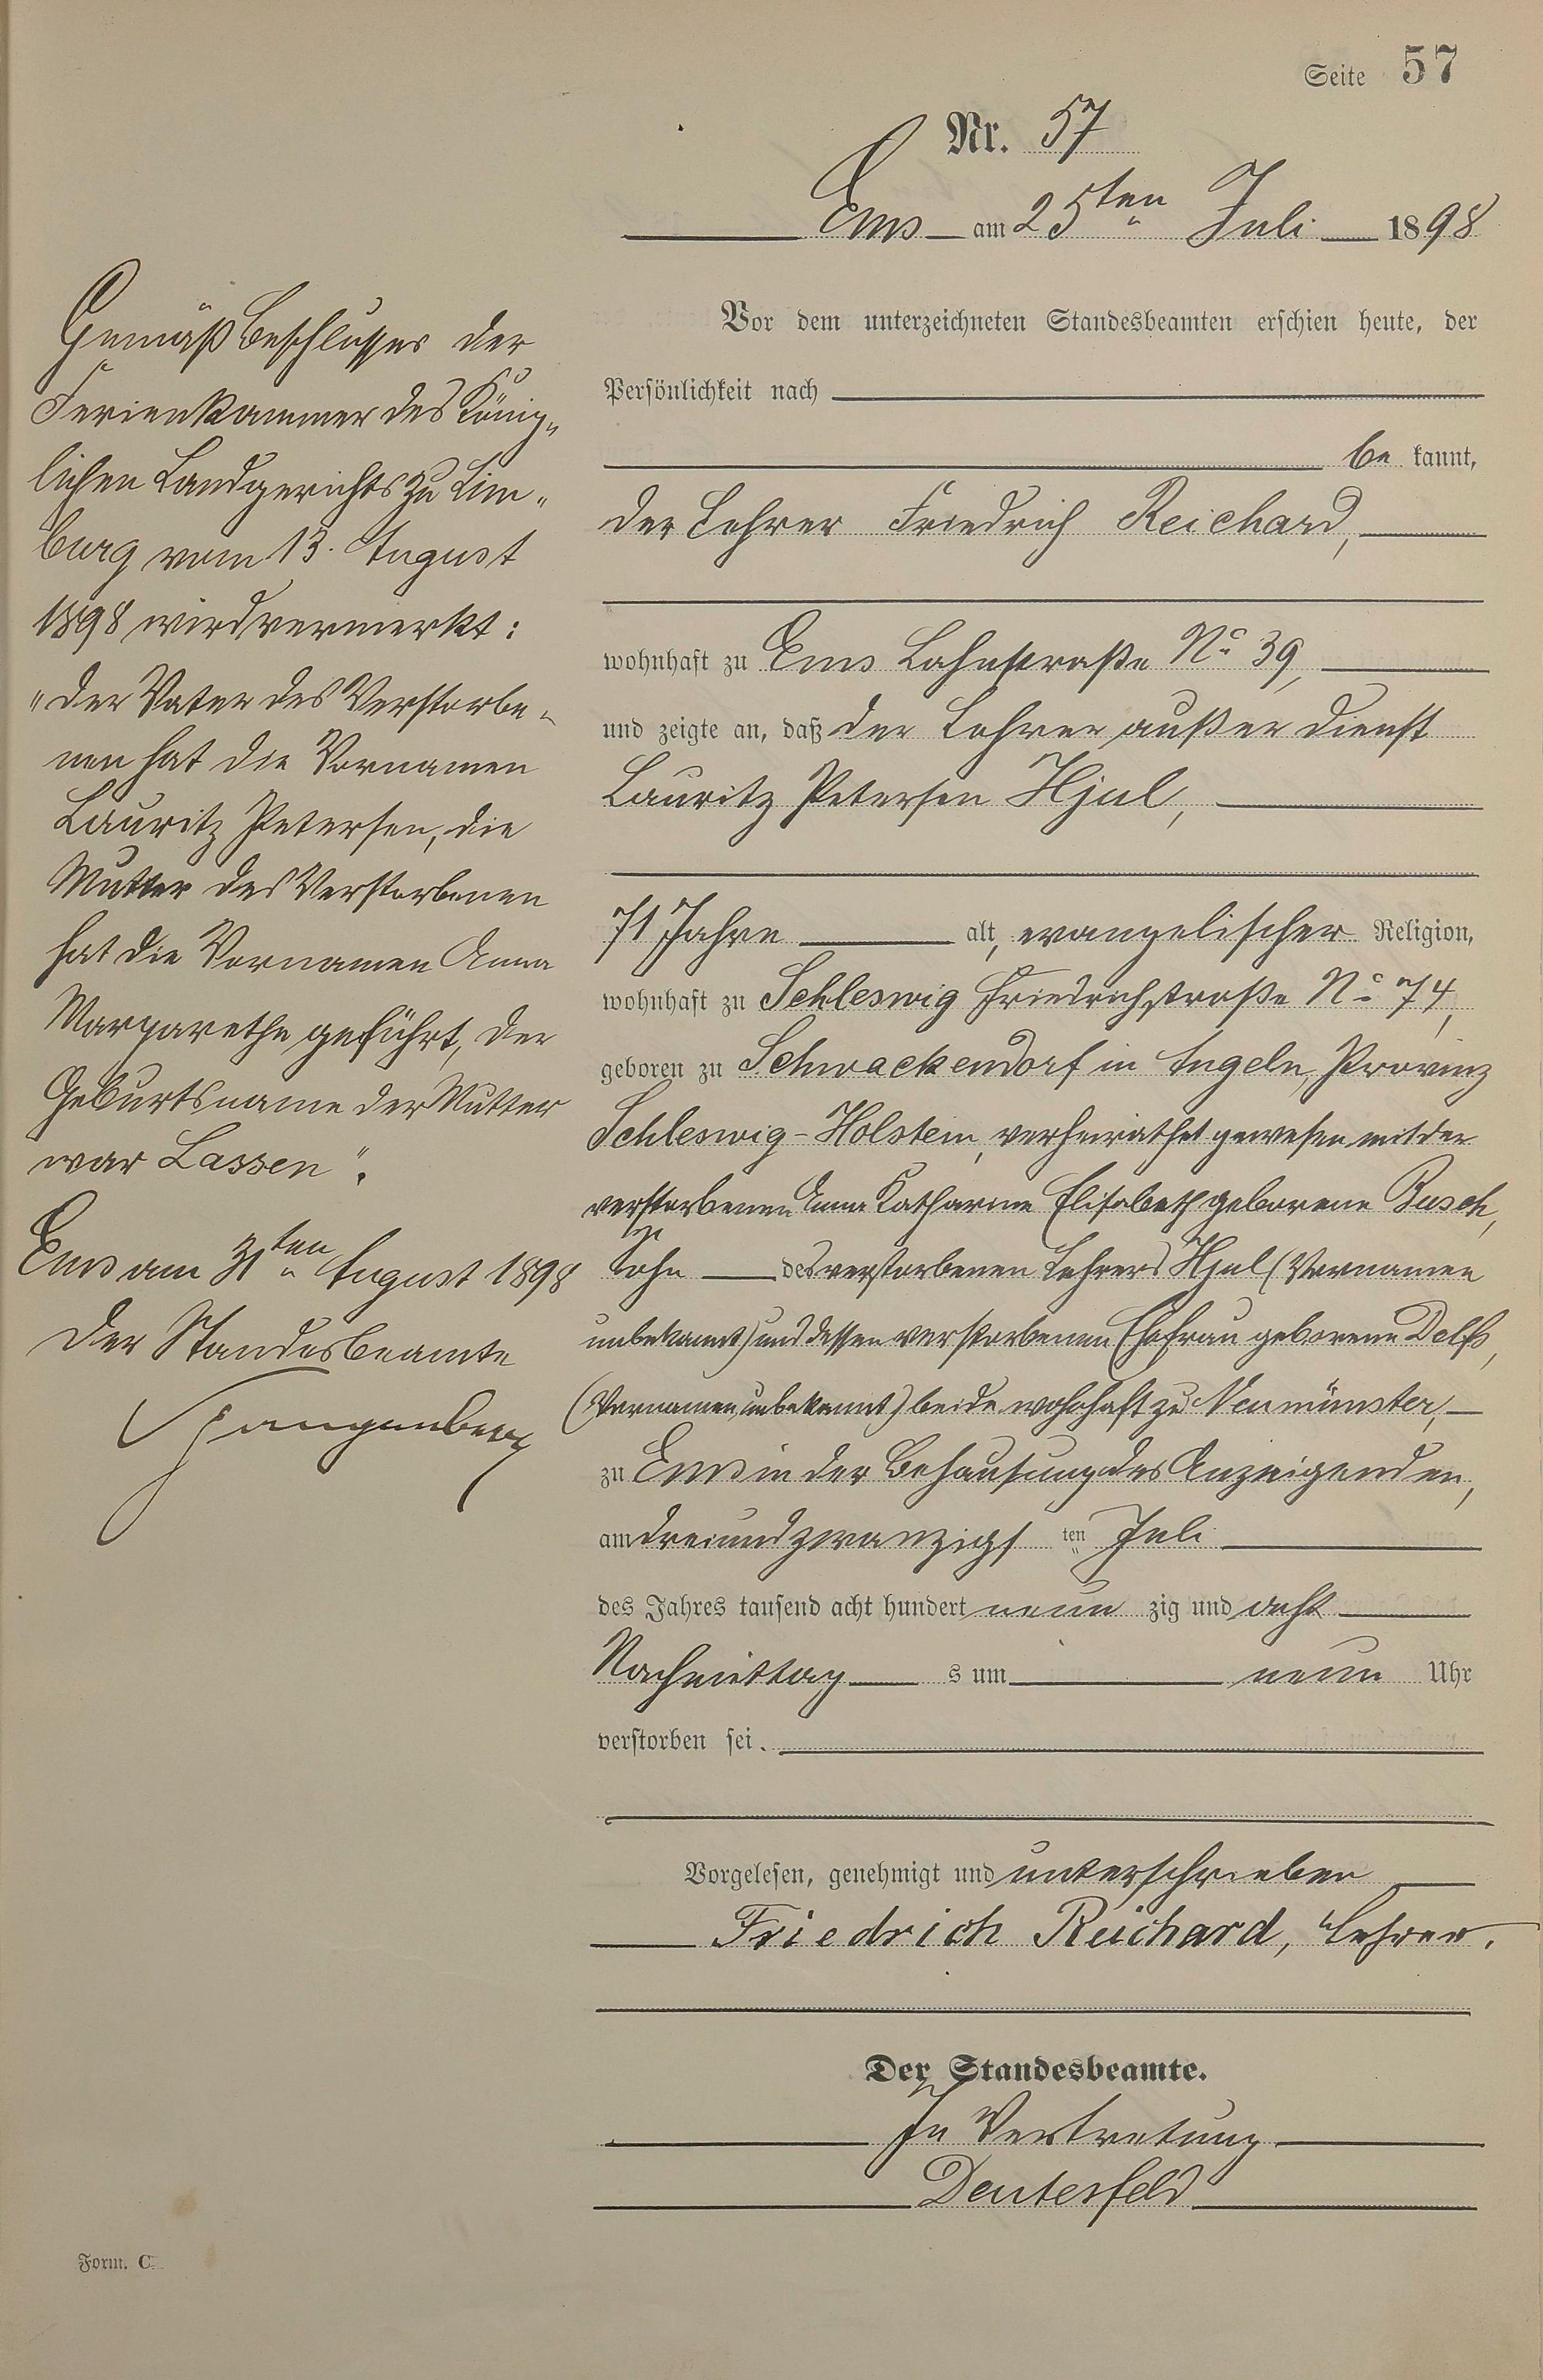 Seite 57
Nr. 57
Ems am 25ten Juli 1898
Vor dem unterzeichneten Standesbeamten erschien heute, der
Persönlichkeit nach
be kannt,
der Lehrer Friedrich Reichard,
wohnhaft zu Ems Lahnstraße No 39,
und zeigte an, daß der Lehrer außer Dienst
Lauritz Petersen Hjul,
71 Jahre alt, evangelischer Religion,
wohnhaft zu Schleswig Friedrichstraße No 74,
geboren zu Schwackendorf in Angeln, Provinz
Schleswig-Holstein, verheirathet gewesen mit der
verstorbenen Anna Katharina Elisabeth geborene Busch,
Sohn des verstorbenen Lehrers Hjul (Vornamen
unbekannt) und dessen verstorbenen Ehefrau geborene Delfs,
(Vornamen unbekannt) beide wohnhaft zu Neumünster,
zu Ems in der Behausung des Anzeigenden,
am dreiundzwanzigs ten Juli
des Jahres tausend acht hundert neun zig und acht
Nachmittag s um neun Uhr
verstorben sei.
Vorgelesen, genehmigt und unterschrieben
Friedrich Reichard, Lehrer.
Der Standesbeamte.
In Vertretung
Deutesfeld
Gemäß Beschlusses der
Ferienkammer des König-
lichen Landgerichts zu Lim-
burg vom 13. August
1898 wird vermerkt:
"Der Vater des Verstorbe-
nen hat die Vornamen
Lauritz Petersen, die
Mutter des Verstorbenen
hat die Vornamen Anna
Margarethe geführt, der
Geburtsname der Mutter
war Lassen".
Ems am 31ten August 1898
Der Standesbeamte
Spangenberg
Form. C.